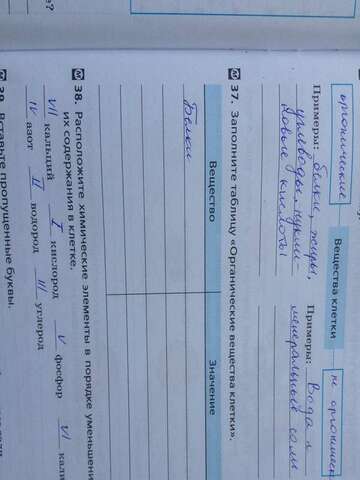 е?
Вещества клетки
органические
не органическ
Примеры: белки, жиры,
углеводы, нукли-
новые кислоты
Примеры: вода и
минеральные соли
37. Заполните таблицу «Органические вещества клетки».
Вещество
Значение
Белки
38. Расположите химические элементы в порядке уменьшени
их содержания в клетке.
VII кальций I кислород V фосфор VI кали
IV азот II водород III углерод
39. Вставьте пропущенные буквы.